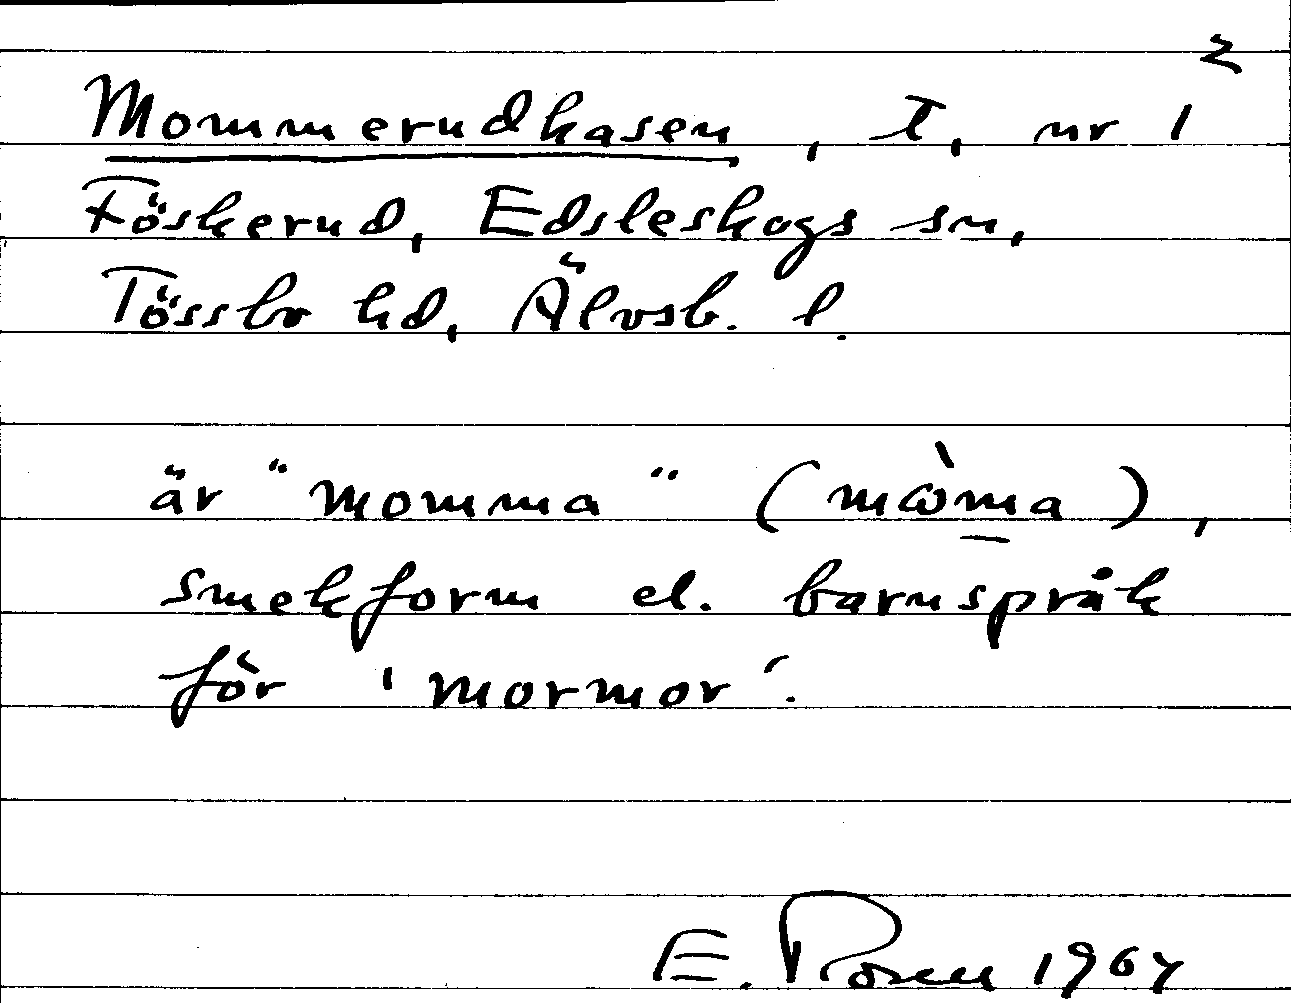 2
Mommerudkasen, t, nr 1
Föskerud, Edsleskogs sn,
Tössbo hd, Älvsb. l.
är "momma" (mɷ̀ma),
smekform el. barnspråk
för 'mormor'.
E. Rosen 1967